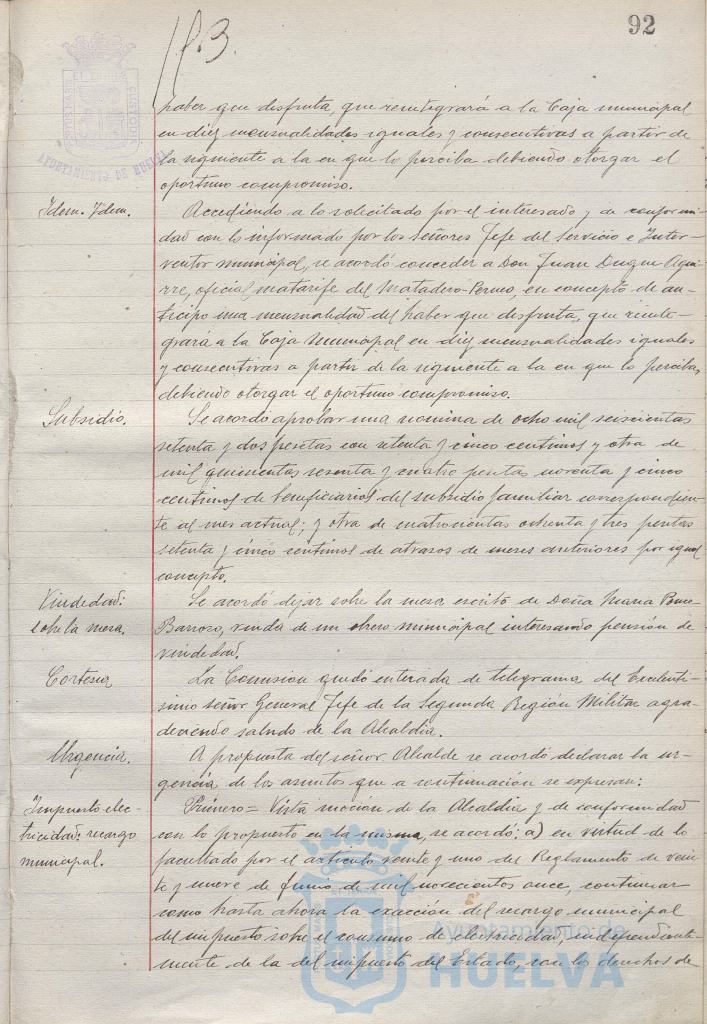 92
1f.3.
haber que disfruta, que reintegrará a la Caja municipal
en diez mensualidades iguales y consecutivas a partir de
la siguiente a la en que lo perciba debiendo otorgar el
oportuno compromiso.
Idem. Idem.
Accediendo a lo solicitado por el interesado y de conformi-
dad con lo informado por los Señores Jefe del Servicio e Inter-
ventor municipal, se acordó conceder a Don Juan Duque Agui-
rre, oficial matarife del Matadero-Perneo, en concepto de an-
ticipo una mensualidad del haber que disfruta, que reinte-
grará a la Caja Municipal en diez mensualidades iguales
y consecutivas a partir de la siguiente a la en que lo perciba,
debiendo otorgar el oportuno compromiso.
Subsidio.
Se acordó aprobar una nómina de ocho mil seiscientas
setenta y dos pesetas con setenta y cinco centimos y otra de
mil quinientas sesenta y cuatro pesetas noventa y cinco
centimos de beneficiarios del subsidio familiar correspondien-
te al mes actual; y otra de cuatrocientas ochenta y tres pesetas
setenta y cinco centimos de atrasos de meses anteriores por igual
concepto.
Viudedad:
sobre la mesa.
Se acordó dejar sobre la mesa escrito de Doña Maria Ponce
Barroso, viuda de un obrero municipal interesando pensión de
viudedad.
Cortesia
La Comision quedó enterada de telegrama del Excelentí-
simo señor General Jefe de la Segunda Región Militar agra-
deciendo saludo de la Alcaldía.
Urgencia.
A propuesta del señor Alcalde se acordó declarar la ur-
gencia de los asuntos que a continuación se expresan:
Impuesto elec-
tricidad: recargo
municipal.
Primero = Vista moción de la Alcaldia y de conformidad
con lo propuesto en la misma, se acordó: a) en virtud de lo
facultado por el artículo veinte y uno del Reglamento de vein-
te y nueve de Junio de mil novecientos once, continuar
como hasta ahora la exacción del recargo municipal
del impuesto sobre el consumo de electricidad, independiente-
mente de la del impuesto del Estado, con los derechos de
AYUNTAMIENTO DE HUELVA
Ayuntamiento de
HUELVA